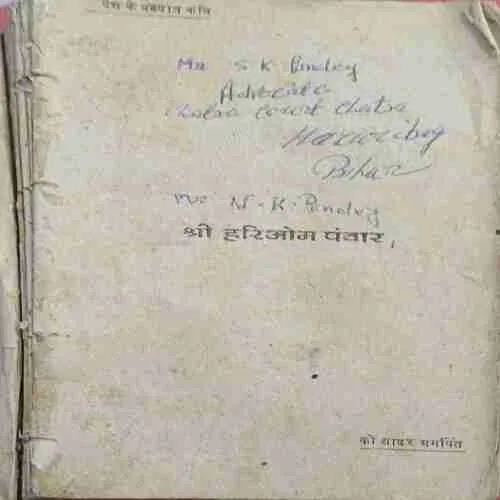 देश के
Mr S K Pandey
Advocate
court Chatra
Hazaribag
Bihar
Mr N. K. Pandey
श्री हरिओम पंवार,
को सादर समर्पित